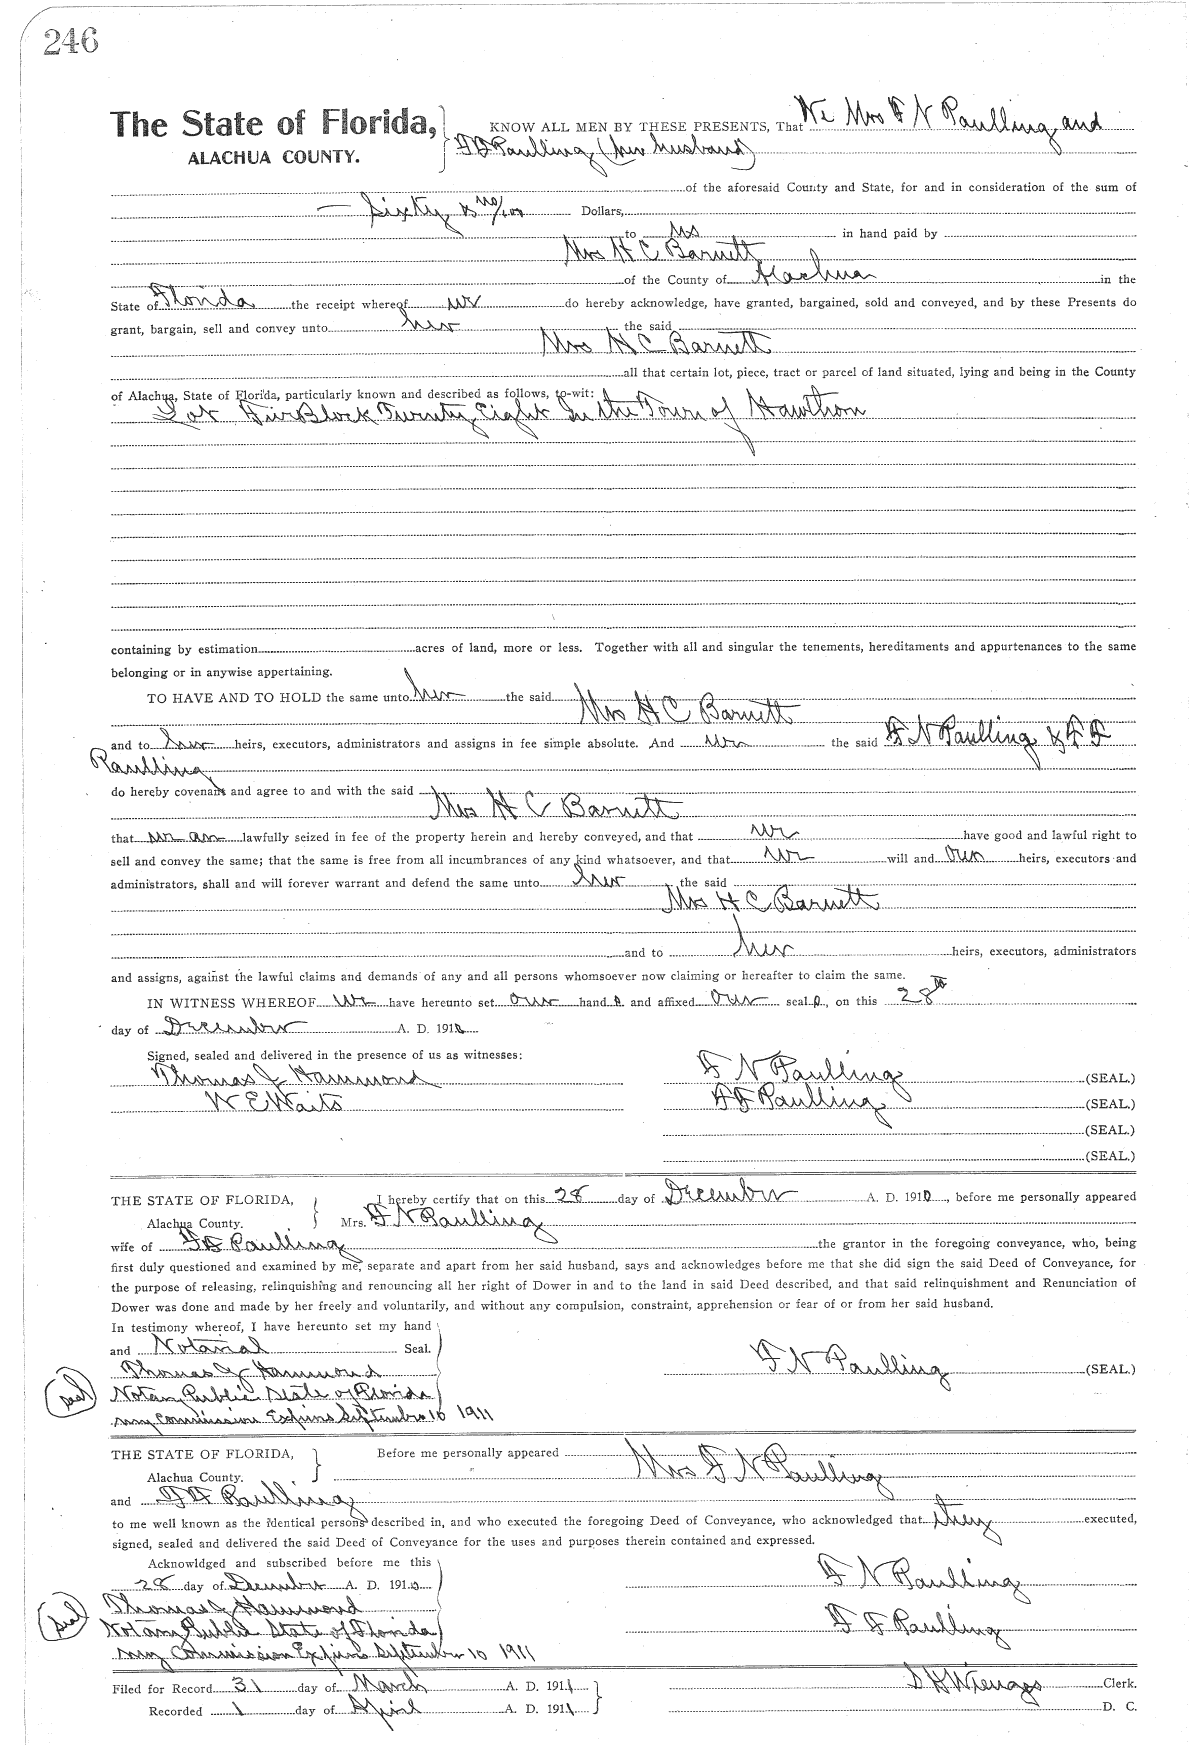 246
The State of Florida, KNOW ALL MEN BY THESE PRESENTS, That We Mrs F N Paulling and
ALACHUA COUNTY. F F Paulling (her husband)
of the aforesaid County and State, for and in consideration of the sum of
— Sixty & no/100 Dollars,
to us in hand paid by
Mrs H C Barnett
of the County of Alachua in the
State of Florida the receipt whereof we do hereby acknowledge, have granted, bargained, sold and conveyed, and by these Presents do
grant, bargain, sell and convey unto her the said
Mrs H C Barnett
all that certain lot, piece, tract or parcel of land situated, lying and being in the County
of Alachua, State of Florida, particularly known and described as follows, to-wit:
Lot Five Block Twenty Eight In the Town of Hawthorn
containing by estimation acres of land, more or less. Together with all and singular the tenements, hereditaments and appurtenances to the same
belonging or in anywise appertaining.
TO HAVE AND TO HOLD the same unto her the said
Mrs H C Barnett
and to her heirs, executors, administrators and assigns in fee simple absolute. And we the said F N Paulling & F F
Paulling
do hereby covenant and agree to and with the said
Mrs H C Barnett
that we are lawfully seized in fee of the property herein and hereby conveyed, and that we have good and lawful right to
sell and convey the same; that the same is free from all incumbrances of any kind whatsoever, and that we will and our heirs, executors and
administrators, shall and will forever warrant and defend the same unto her the said
Mrs H C Barnett
and to her heirs, executors, administrators
and assigns, against the lawful claims and demands of any and all persons whomsoever now claiming or hereafter to claim the same.
IN WITNESS WHEREOF We have hereunto set our hand s and affixed our seal s, on this 28th
day of December A. D. 1910
Signed, sealed and delivered in the presence of us as witnesses:
Thomas J Hammond F N Paulling (SEAL.)
W E Waits F F Paulling (SEAL.)
(SEAL.)
(SEAL.)
THE STATE OF FLORIDA, I hereby certify that on this 28 day of December A. D. 1910, before me personally appeared
Alachua County. Mrs. F N Paulling
wife of F F Paulling the grantor in the foregoing conveyance, who, being
first duly questioned and examined by me, separate and apart from her said husband, says and acknowledges before me that she did sign the said Deed of Conveyance, for
the purpose of releasing, relinquishing and renouncing all her right of Dower in and to the land in said Deed described, and that said relinquishment and Renunciation of
Dower was done and made by her freely and voluntarily, and without any compulsion, constraint, apprehension or fear of or from her said husband.
In testimony whereof, I have hereunto set my hand
and Notarial Seal.
Thomas J Hammond F N Paulling (SEAL.)
(seal) Notary Public State of Florida
my commission Expires September 10 1911
THE STATE OF FLORIDA, Before me personally appeared
Alachua County. Mrs F N Paulling
and F F Paulling
to me well known as the identical persons described in, and who executed the foregoing Deed of Conveyance, who acknowledged that they executed,
signed, sealed and delivered the said Deed of Conveyance for the uses and purposes therein contained and expressed.
Acknowldged and subscribed before me this
28 day of December A. D. 1910 F N Paulling
(seal) Thomas J Hammond
Notary Public State of Florida F F Paulling
my Commission Expires September 10 1911
Filed for Record 31 day of March A. D. 1911 S H Wienges Clerk.
Recorded 1 day of April A. D. 1911 D. C.